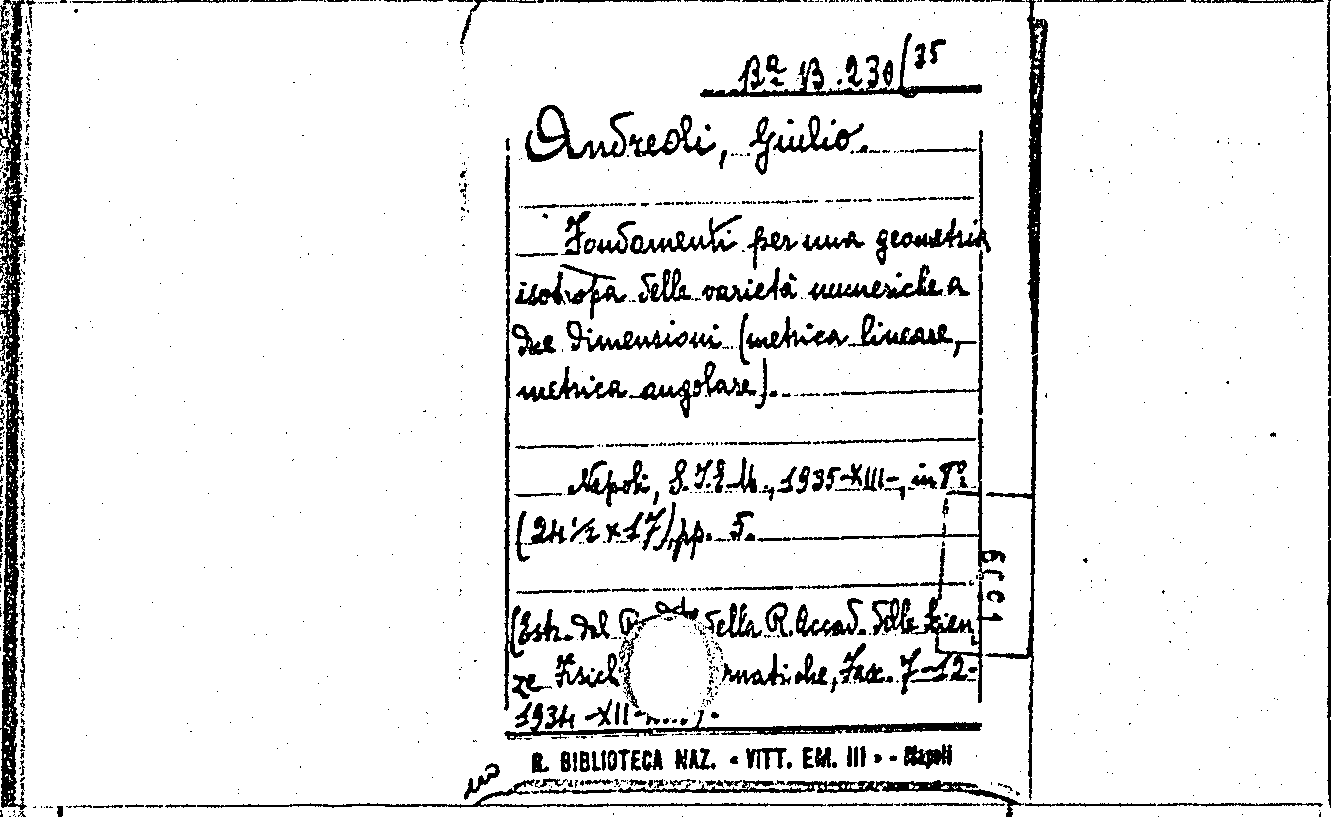 Bª B. 230(35
Andreoli, Giulio.
Fondamenti per una geometria
isotropa delle varietà numeriche a
due dimensioni (metrica lineare,
metrica angolare).
Napoli, S.I.E.M., 1935-XIII-, in 8º
(24 ½ x 17), pp. 5.
(Estr. dal della R. Accad. delle Scien
ze Fisich matiche, Fasc. 7-12-
1934-XII-
R. BIBLIOTECA NAZ. « VITT. EM. III » - Napoli